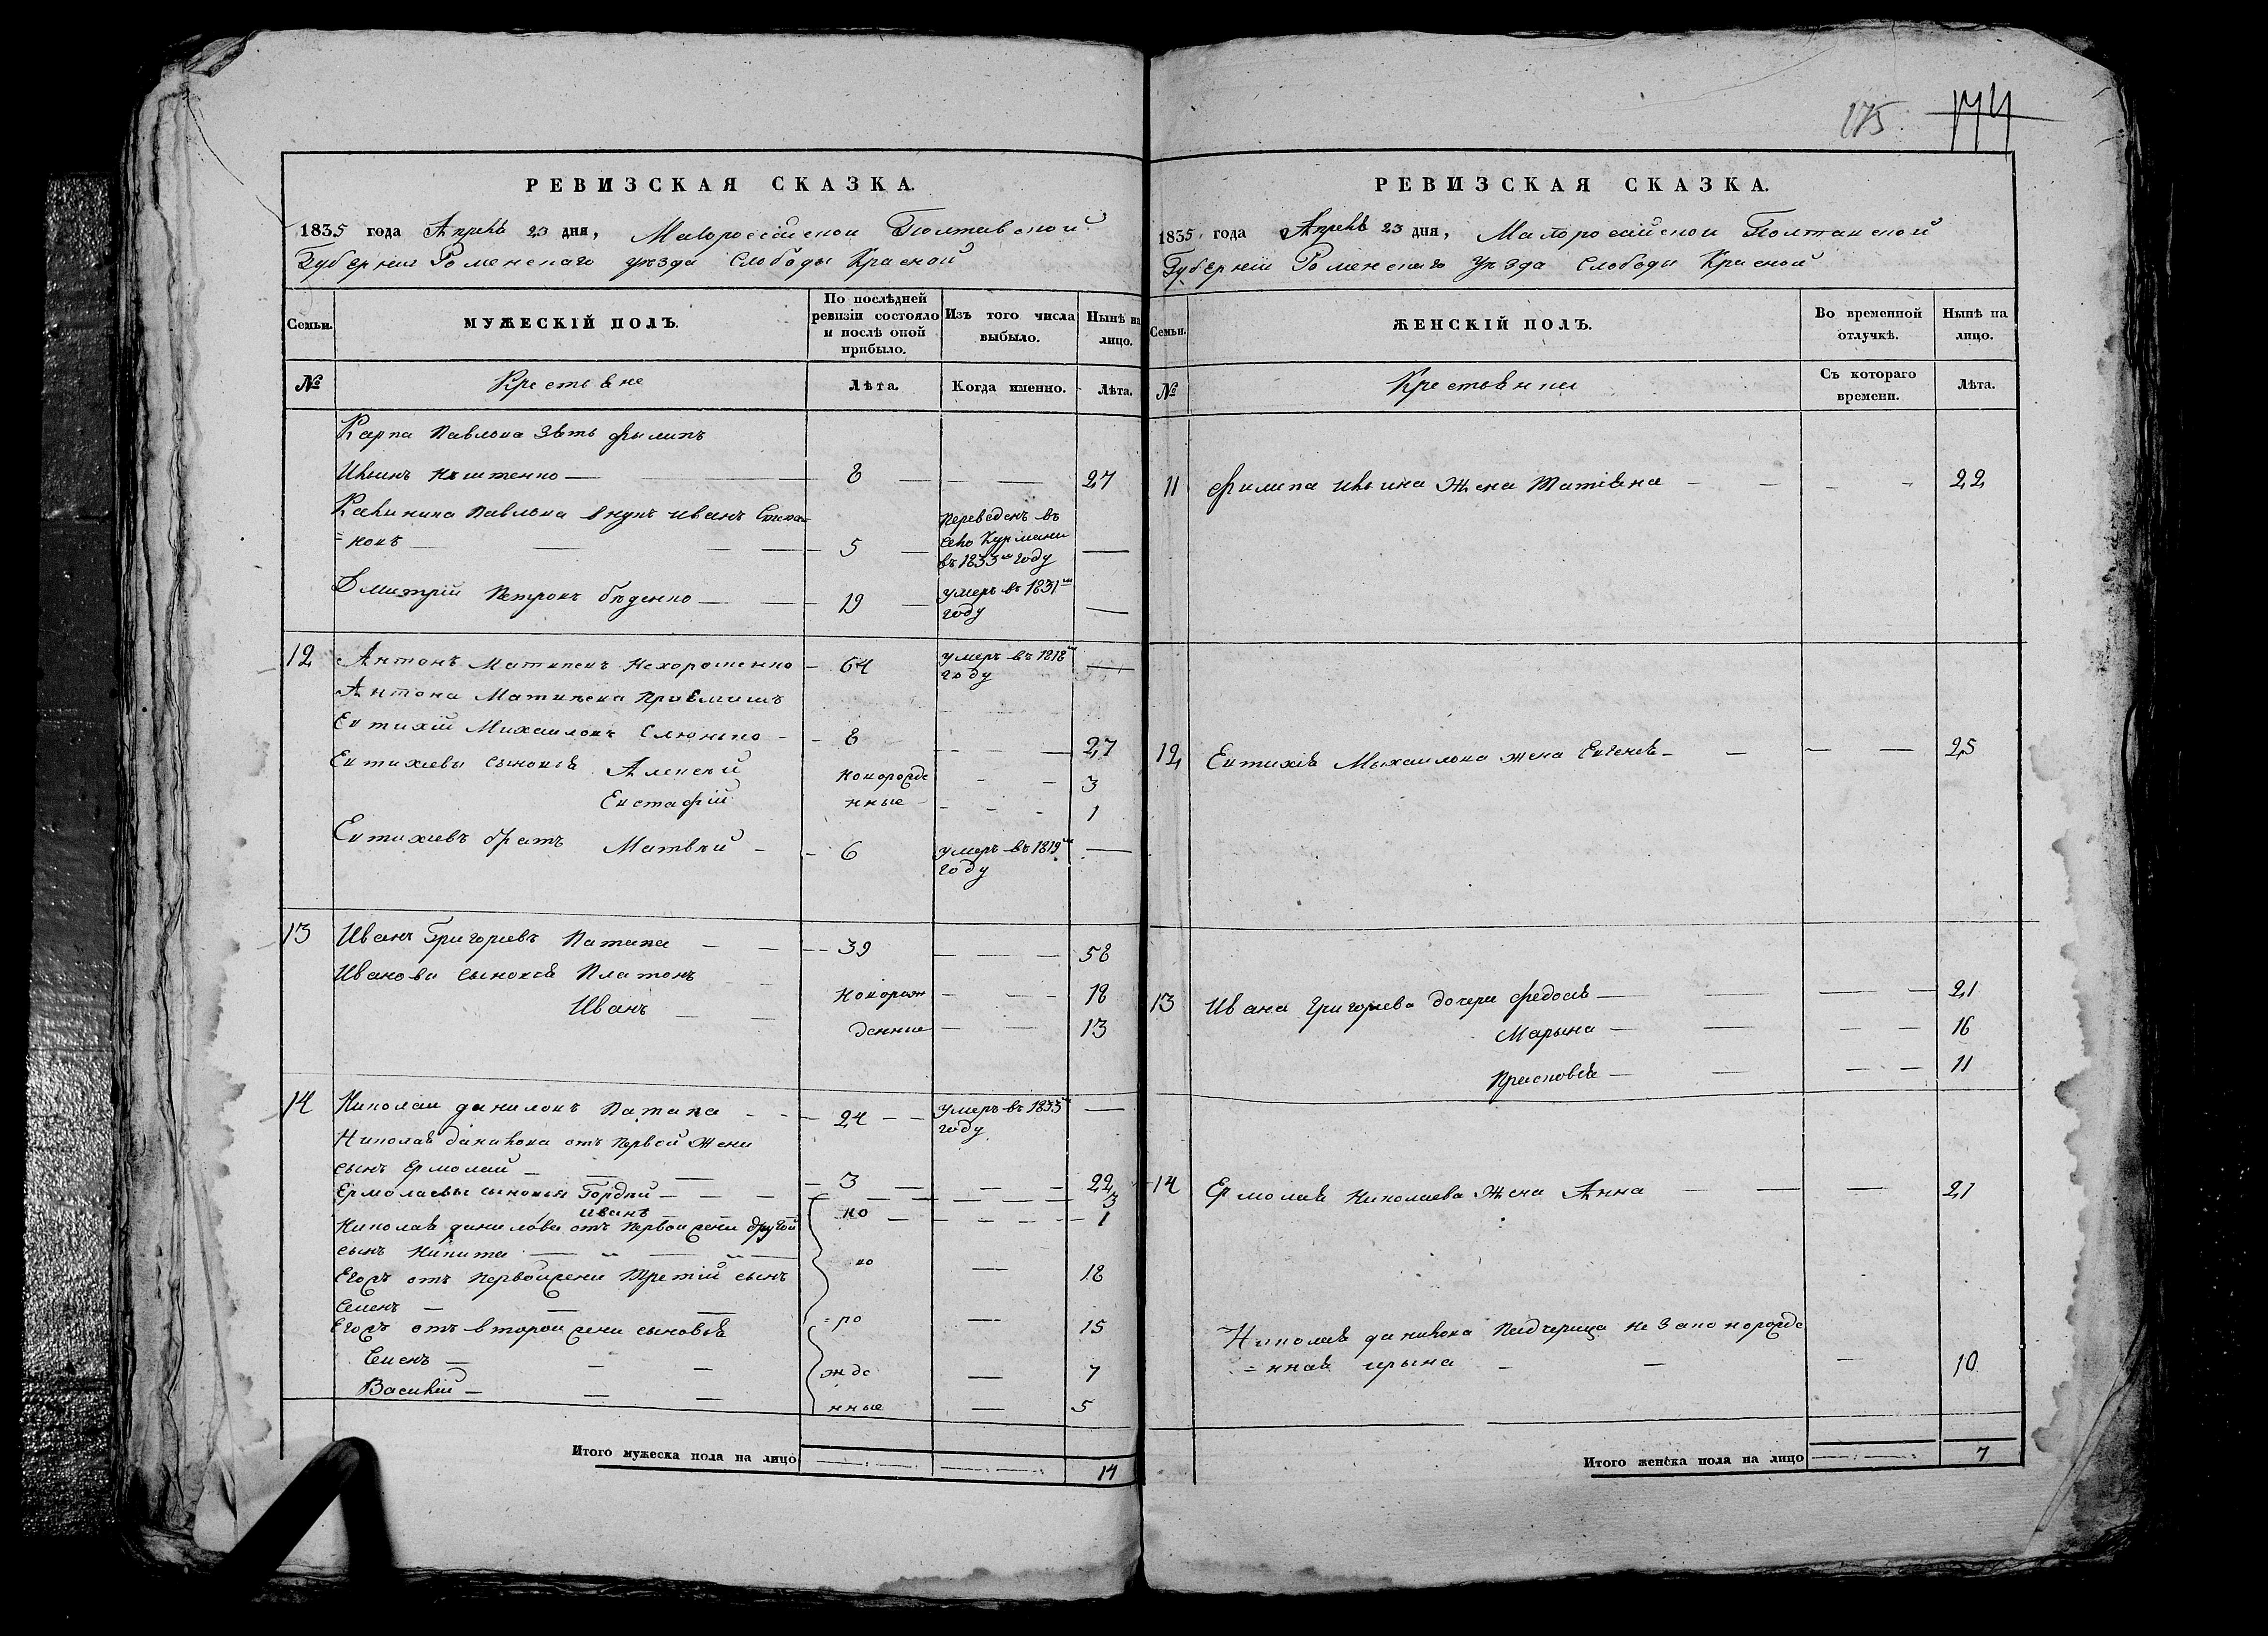 175 174
РЕВИЗСКАЯ СКАЗКА.
1835 года Апреля 23 дня, Малороссійской Полтавской
Губерніи Роменскаго уѣзда Слободы Красной
Семьи. МУЖЕСКІЙ ПОЛЪ. По послѣдней ревизіи состояло и послѣ оной прибыло. Изъ того числа выбыло. Нынѣ на лицо.
№ Крестьяне Лѣта. Когда именно. Лѣта.
Карпа Павлова Зять Филипъ
Ильинъ 8 27
Калиника Павлова внукъ Иванъ Степа=
=новъ 5 Переведенъ въ Село Курмани въ 1833м году
Дмитрій Петровъ Бѣденко 19 умеръ въ 1831м году
12 Антонъ Матвѣевъ Нехорошенко 64 умеръ въ 1818м году
Антона Матвѣева Пріемишъ
Евтихій Михаиловъ Слюнько 8 27
Евтихіевы сыновья Алексѣй новорожде 3
Евстафій нные 1
Евтихіевъ братъ Матвѣй 6 умеръ въ 1819м году
13 Иванъ Григорьевъ Патапа 39 58
Ивановы сыновья Платонъ новорож 18
Иванъ денные 13
14 Николай Данилов Патапа 24 умеръ въ 1833м году
Николая Данилова отъ первой жены
сынъ Ермолай 3 22
Ермолаевы сыновья Гордѣй 3
Иванъ но 1
Николая Данилова отъ первой жены другой
сынъ Никита во 18
Егожъ отъ первой жены третій сынъ
Семенъ =ро 15
Егожъ отъ второй жены сыновья
Семенъ жде 7
Василій нные 5
Итого мужеска пола на лицо 14
РЕВИЗСКАЯ СКАЗКА.
1835 года Апреля 23 дня, Малоросійской Полтавской
Губерніи Роменскаго Уѣзда Слободы Красной
Семьи. ЖЕНСКІЙ ПОЛЪ. Во временной отлучкѣ. Нынѣ на лицо.
№ Крестьянки Съ котораго времени. Лѣта.
11 Филипа Ильина Жена Татіяна 22
12 Евтихія Михаилова жена Евгенія 25
13 Ивана Григорьева дочери Федося 21
Марына 16
Прасковья 11
14 Ермолая Николаева Жена Анна 21
Николая Данилова Падчерица незаконорожде
=нная Ирына 10
Итого женска пола на лицо 7